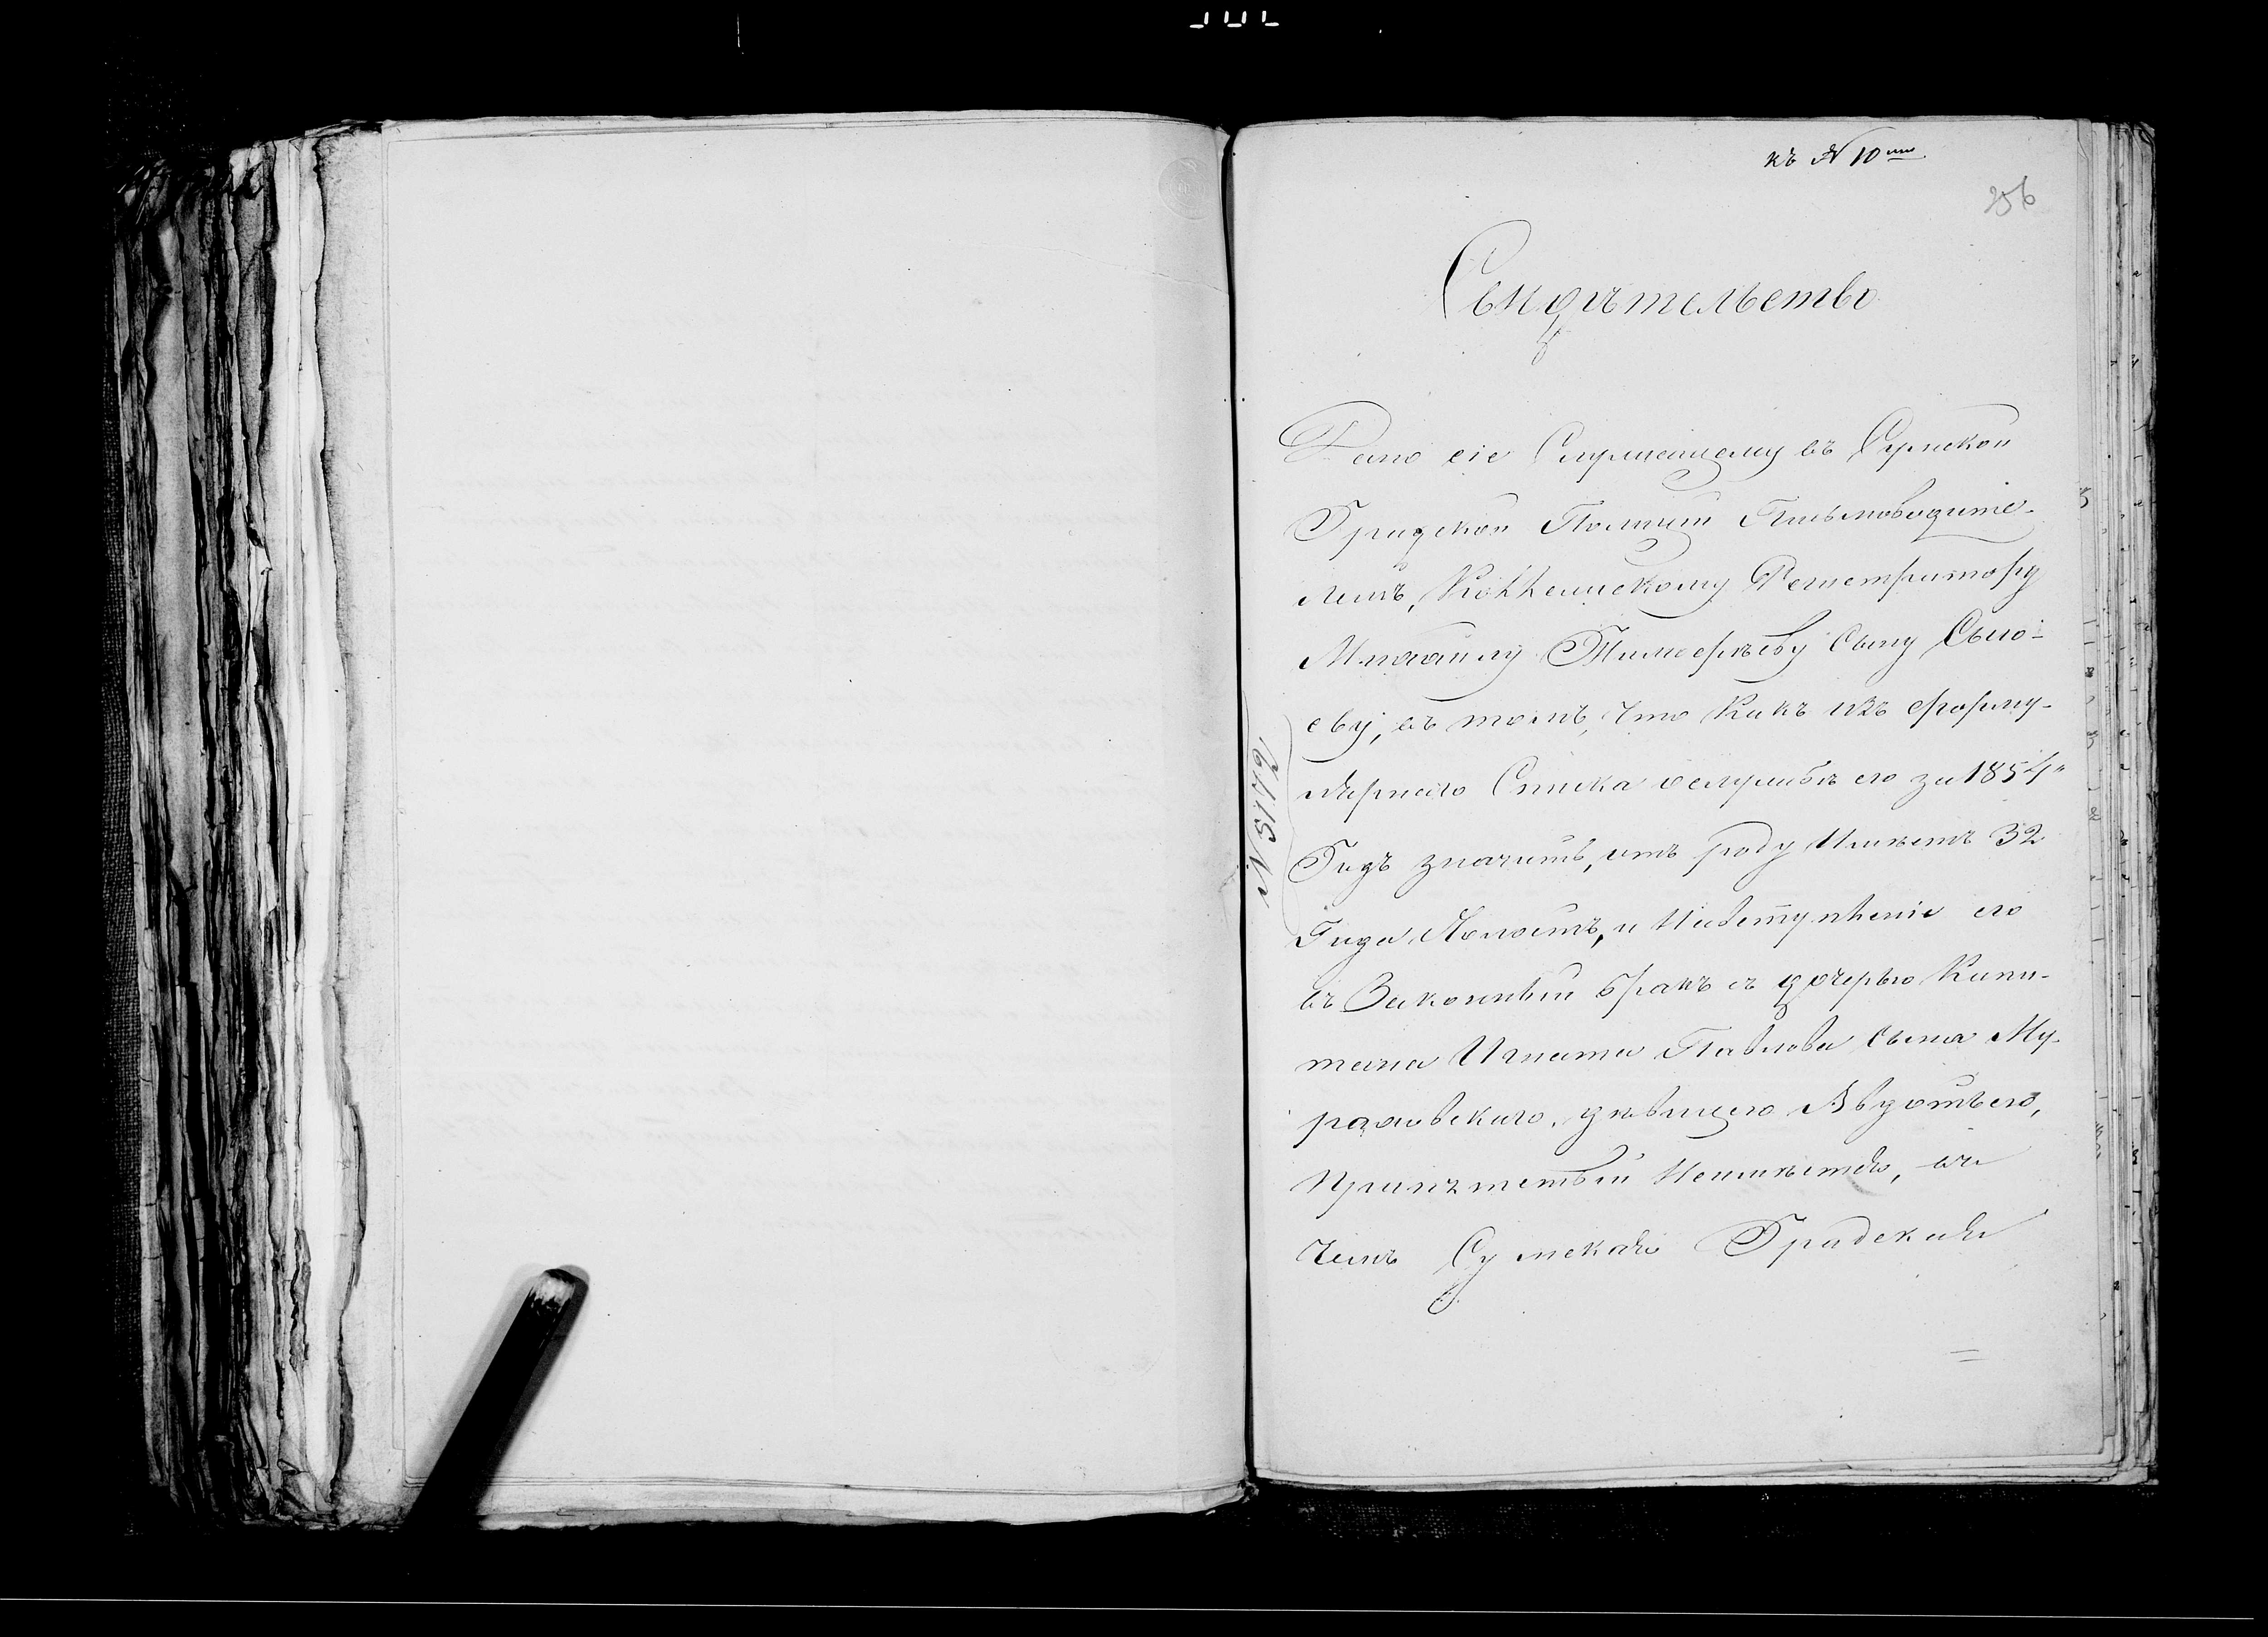 къ № 10му
256
Свидѣтельство
Дано сіе Служащему въ Сумской
Градской Полиціи Письмоводите-
лемъ, Коллежскому Регистратору
Михаилу Тимофѣеву сыну Сыло-
еву, въ томъ, что какъ изъ форму-
лярнаго Списка о службѣ его за 1854й
Годъ значитъ, отъ роду имѣетъ 32
Года Холостъ, и на вступленіе его
въ Законный бракъ съ дочерью Капи-
тана Игната Павлова сына Му-
рахо́вскаго, дѣвицею Авдотьею,
препятствій неимѣется, въ
чемъ Сумская Градская
№ 5172